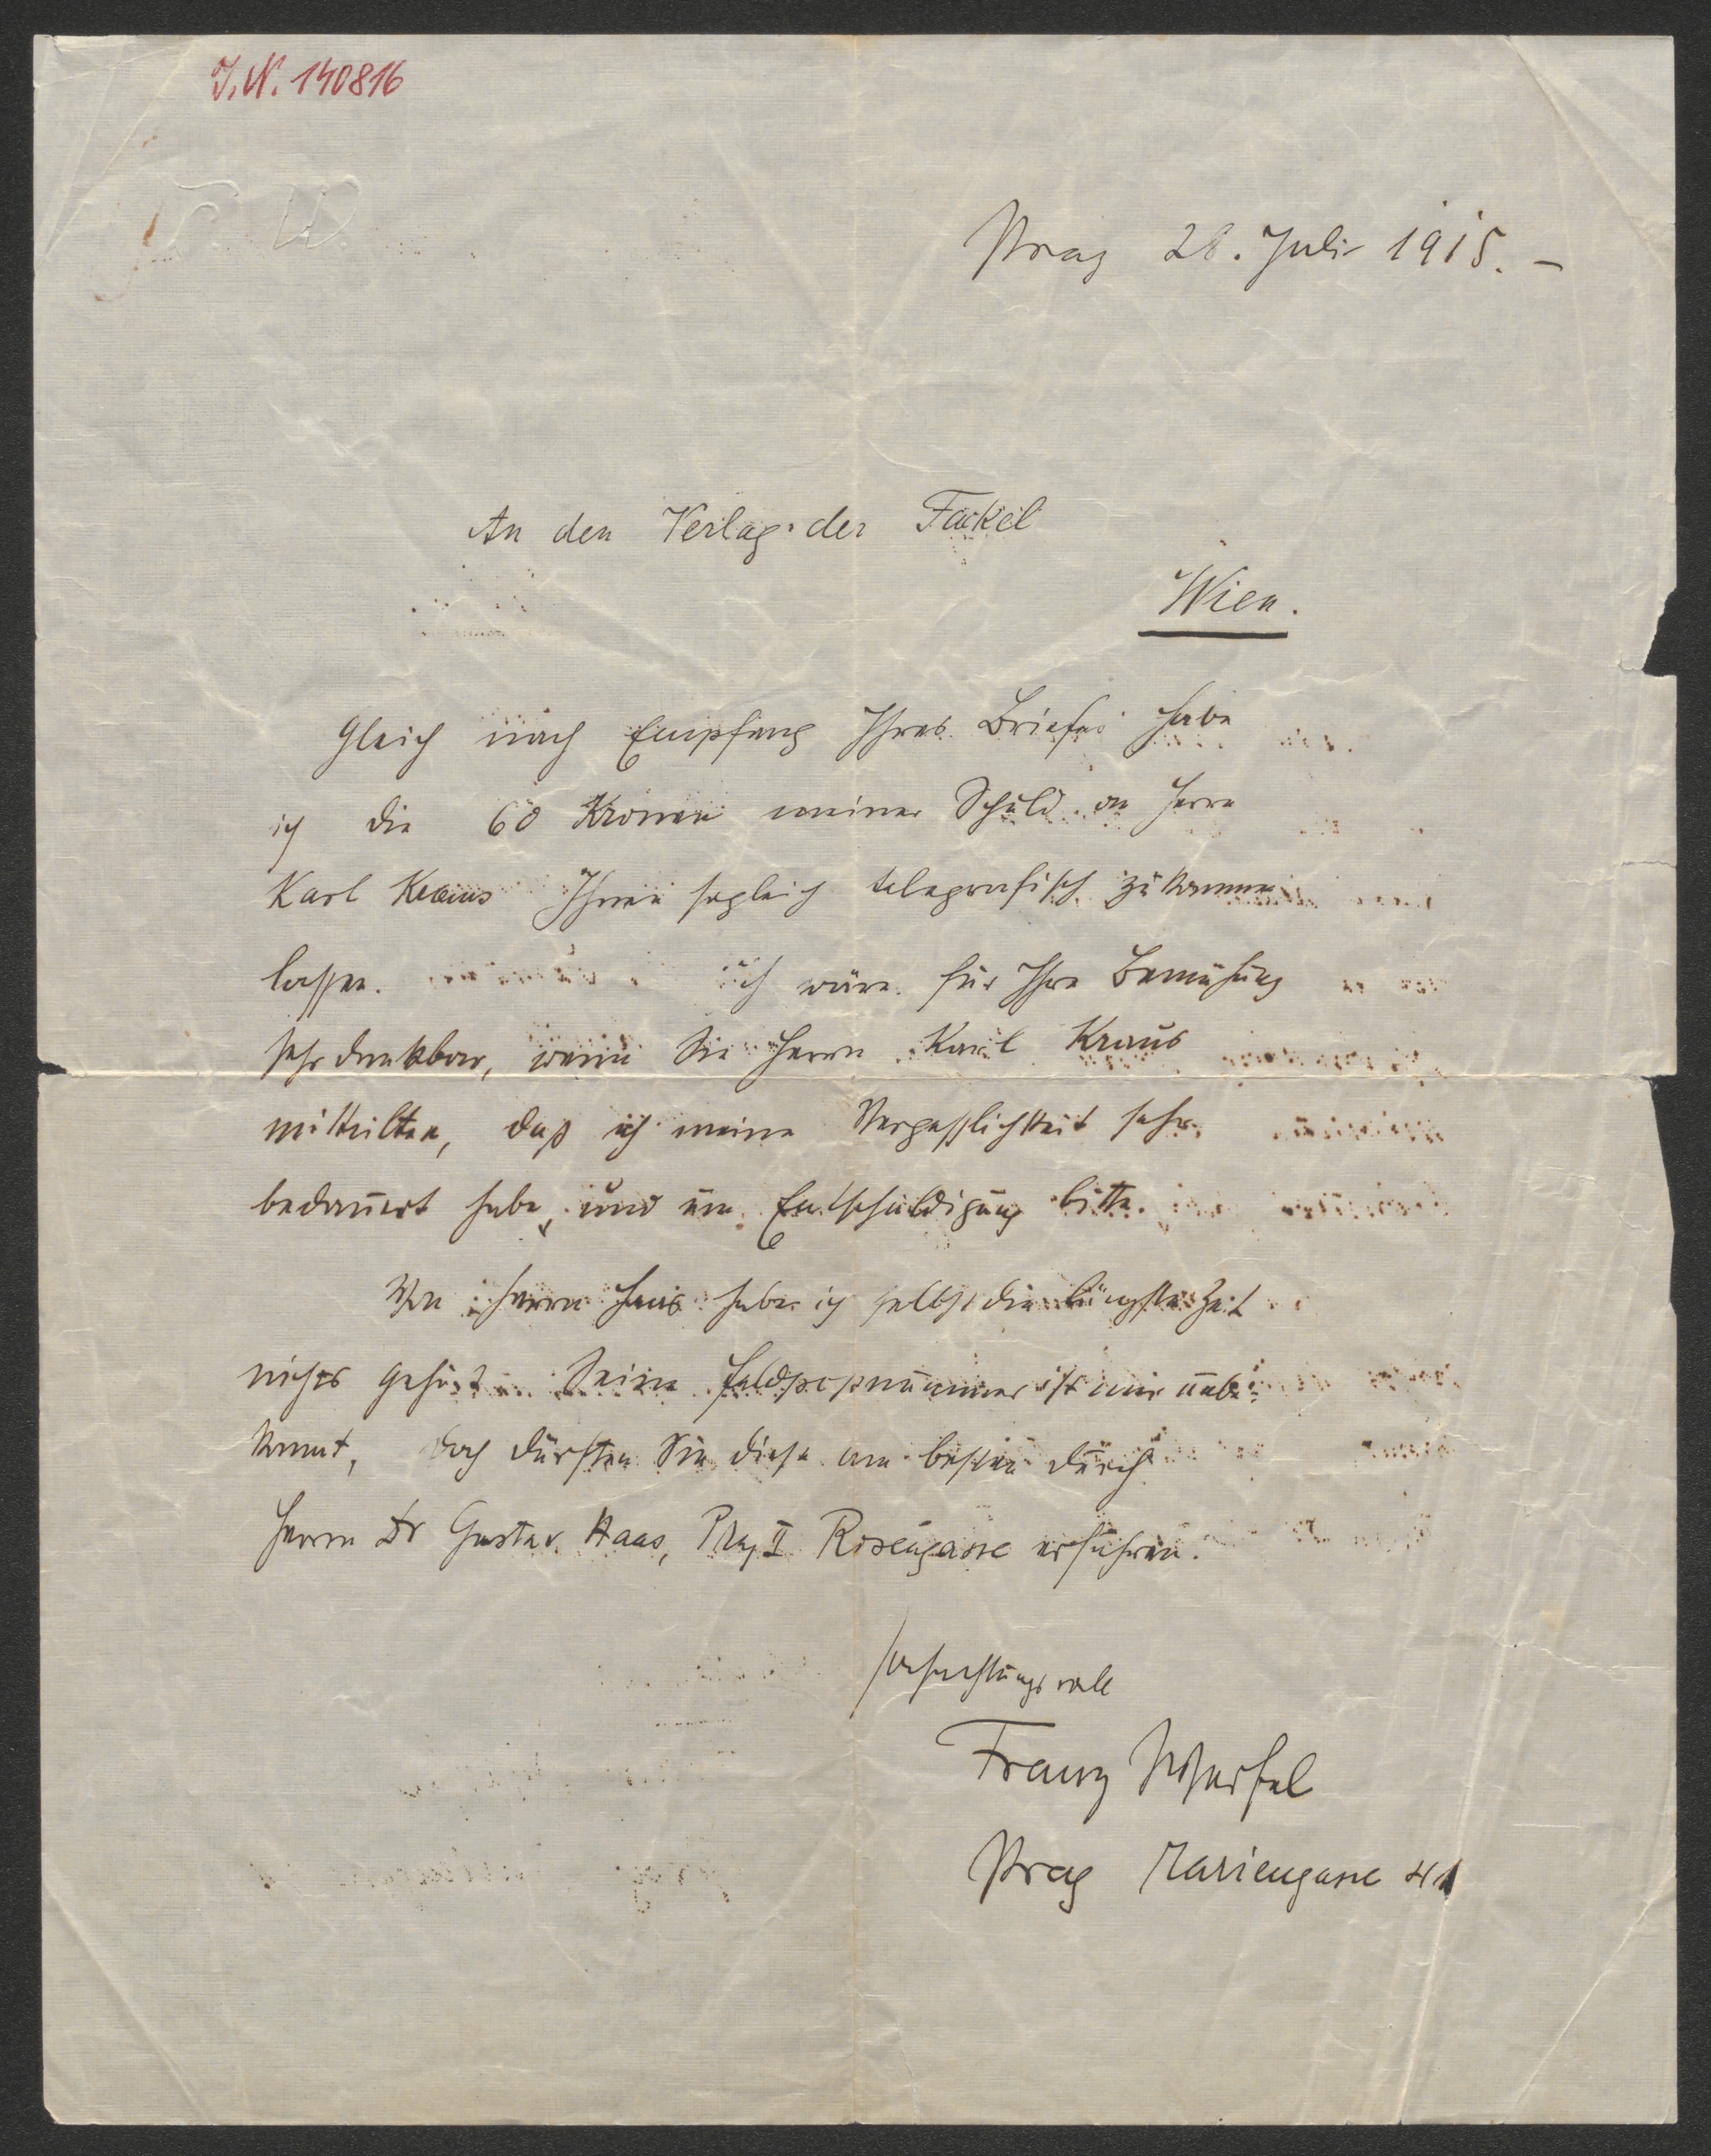 J.N. 140816
F. W.
Prag 28. Juli 1915. –
An den Verlag der Fackel
Wien.
Gleich nach Empfang Ihres Briefes habe
ich die 60 Kronen meiner Schuld an Herrn
Karl Kraus Ihnen sogleich telegrafisch zukommen
lassen. ich wäre für Ihre Bemühung
sehr dankbar, wenn Sie Herrn Karl Kraus
mitteilten, daß ich meine Vergesslichkeit sehr
bedauert habe, und um Entschuldigung bitte.
Von Herrn Haas habe ich selbst die längste Zeit
nichts gehört. Seine Feldpostnummer ist mir unbe-
kannt, doch dürften Sie diese am besten durch
Herrn Dr Gustav Haas, Prag II Rosengasse erfahren.
hochachtungsvoll
Franz Werfel
Prag Mariengasse 41